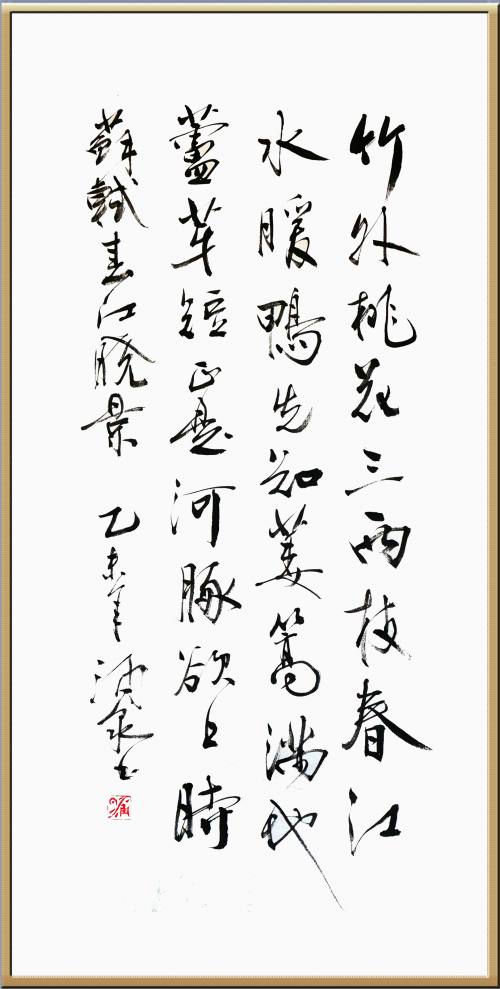 竹外桃花三兩枝春江
水暖鴨先知蔞蒿滿地
蘆芽短正是河豚欲上時
蘇軾春江曉景 乙未年 泉书